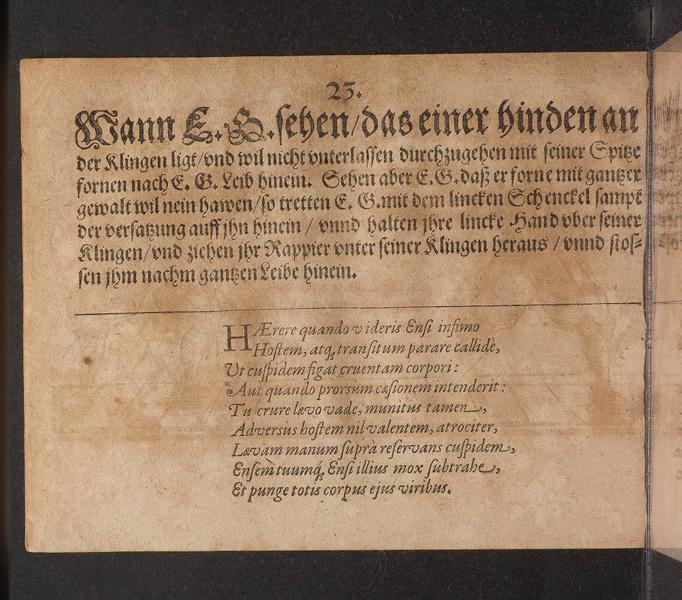 23.
Wann E. G. sehen/das einer hinden an
der Klingen ligt/vnd wil nicht vnterlassen durchzugehen mit seiner Spitze
fornen nach E. G. Leib hinein. Sehen aber E. G. daß er forne mit gantzer
gewalt wil nein hawen/so tretten E. G. mit dem lincken Schenckel sampt
der versatzung auff jhn hinein / vnnd halten jhre lincke Hand vber seiner
Klingen/vnd ziehen jhr Rappier vnter seiner Klingen heraus / vnnd stos-
sen jhm nachm gantzen Leibe hinein.
HÆrere quando videris Ensi infimo
Hostem, atq; transitum parare callidè,
Ut cuspidem figat cruentam corpori:
Aut quando prorsùm cæsionem intenderit:
Tu crure lævo vade, munitus tamen,
Adversus hostem nil valentem, atrociter,
Lævam manum suprà reservans cuspidem,
Ensem tuumq; Ensi illius mox subtrahe,
Et punge totis corpus ejus viribus.